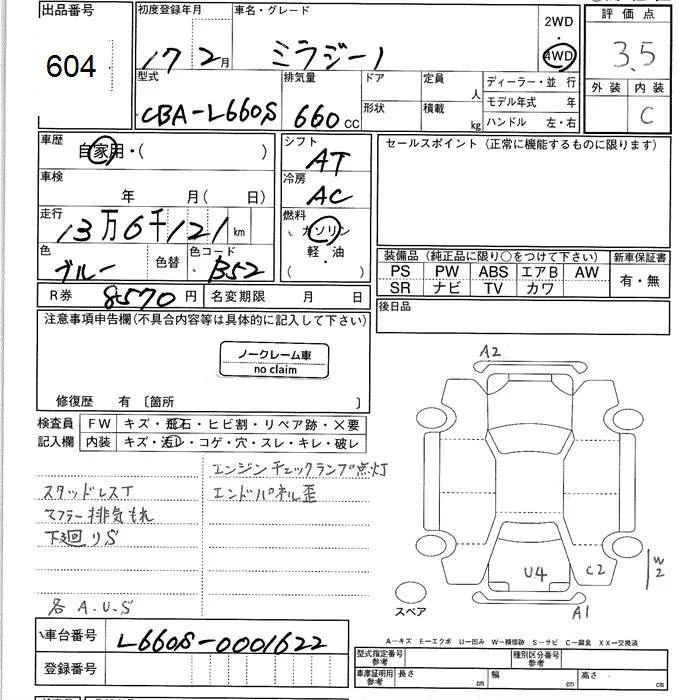 出品番号
604
初度登録年月
17 2月
車名・グレード
ミラジーノ
2WD
・
4WD
評価点
3.5
外装 内装
C
型式
CBA-L660S
排気量
660 CC
ドア
形状
定員 人
積載 kg
ディーラー・並行
モデル年式 年
ハンドル 左・右
車歴
自家用・( )
車検
年 月( 日)
走行
13万6千121 km
色
ブルー
色替
色コード
B52
シフト
AT
冷房
AC
燃料
ガソリン
軽・油
( )
セールスポイント(正常に機能するものに限ります)
装備品(純正品に限り○をつけて下さい)
PS PW ABS エアB AW
SR ナビ TV カワ
新車保証書
有・無
後日品
R券 8570円
名変期限 月 日
注意事項申告欄(不具合内容等は具体的に記入して下さい)
ノークレーム車
no claim
修復歴 有〔箇所 〕
検査員
記入欄
FW キズ・飛石・ヒビ割・リペア跡・X要
内装 キズ・汚レ・コゲ・穴・スレ・キレ・破レ
スタッドレスT
マフラー排気もれ
下廻りS
各 A.U.S
エンジンチェックランプ点灯
エンドパネル歪
A2
U4
C2
W2
A1
スペア
A-キズ E-エクボ U-凹み W-補修跡 S-サビ C-腐食 XX-交換済
車台番号
L660S-0001622
登録番号
型式指定番号
参考
種別区分番号
参考
車庫証明用
参考
長さ cm
幅 cm
高さ cm